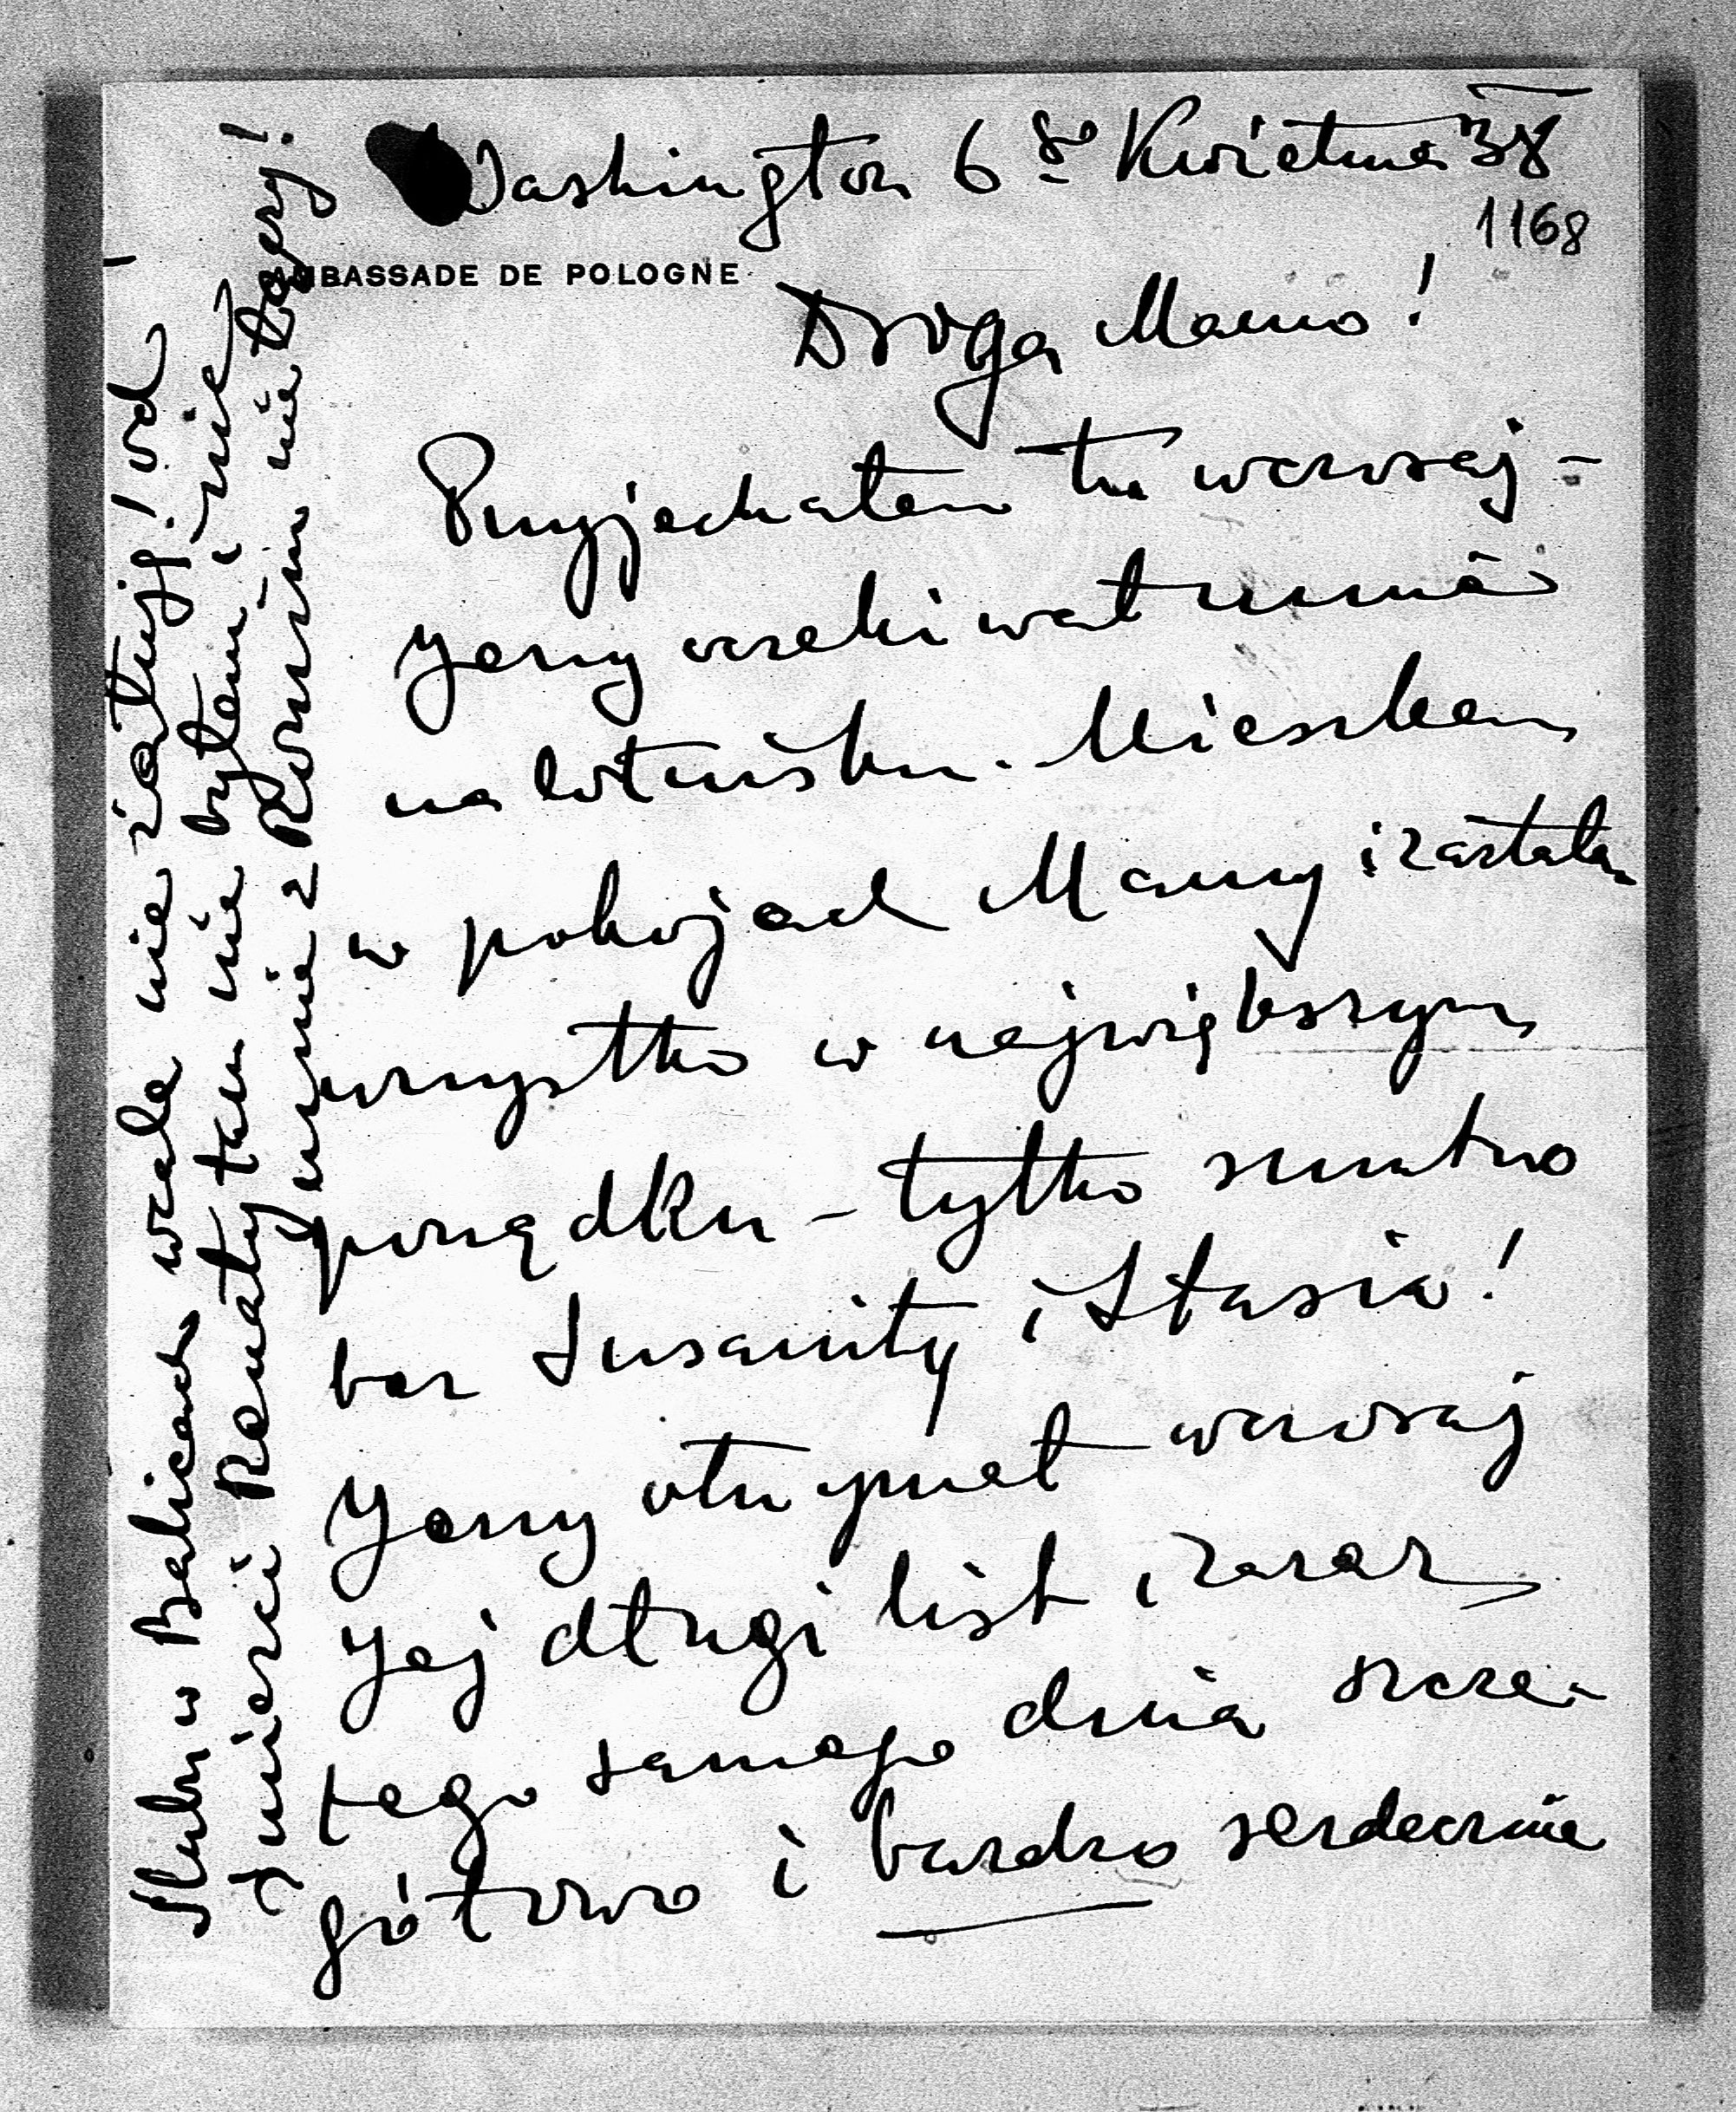 Washington 6 go Kwietnia 38
1168
AMBASSADE DE POLOGNE
Droga Mamo!
Przyjechałem tu wczoraj -
Jerzy oczekiwał mnie
na lotnisku. Mieszkam
w pokojach Mamy i zastałam
wszystko w największym
porządku - tylko smutno
bez Susanity i Stasia!
Jerzy otrzymał wczoraj
Jej długi list i zaraz
tego samego dnia szcze-
gółowo i bardzo serdecznie
Ślubu w Balicach wcale nie żałuję! od
śmierci Renaty tam nie byłem i nic
mnie z Romą nie łączy!